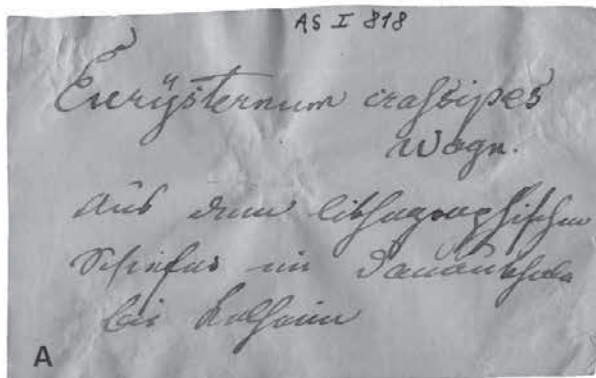 AS I 818
Eurÿsternum craſsipes
Wagn.
Aus dem lithographischen
Schiefer im Donauthale
bei Kelheim
A